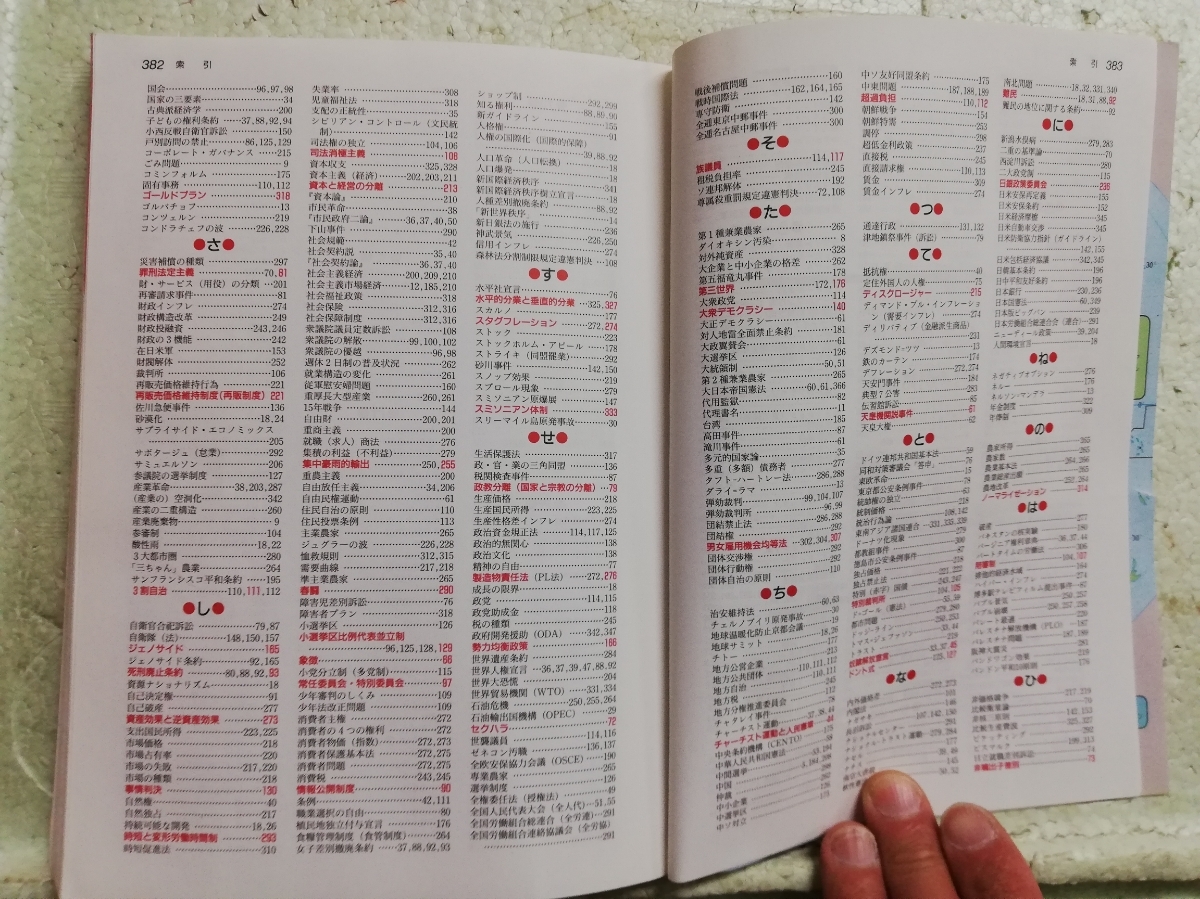 382 索 引
国会 96,97,98
国家の三要素 34
古典派経済学 200
子どもの権利条約 37,88,92,94
小西反戦自衛官訴訟 150
戸別訪問の禁止 86,125,129
コーポレート・ガバナンス 215
ごみ問題 9
コミンフォルム 175
固有事務 110,112
ゴールドプラン 318
ゴルバチョフ 13
コンツェルン 219
コンドラチェフの波 226,228
●さ●
災害補償の種類 297
罪刑法定主義 70,81
財・サービス（用役）の分類 201
再審請求事件 81
財政インフレ 274
財政構造改革 249
財政投融資 243,246
財政の3機能 242
在日米軍 153
財閥解体 252
裁判所 106
再販売価格維持行為 221
再販売価格維持制度(再販制度) 221
佐川急便事件 136
砂漠化 18,24
サプライサイド・エコノミックス
205
サボタージュ（怠業） 292
サミュエルソン 206
参議院の選挙制度 127
産業革命 38,203,287
（産業の）空洞化 342
産業の二重構造 260
産業廃棄物 9
参審制 104
酸性雨 18,22
3大都市圏 280
「三ちゃん」農業 264
サンフランシスコ平和条約 195
3割自治 110,111,112
●し●
自衛官合祀訴訟 79,87
自衛隊（法） 148,150,157
ジェノサイド 165
ジェノサイド条約 92,165
死刑廃止条約 80,88,92,93
資源ナショナリズム 18
自己決定権 91
自己破産 277
資産効果と逆資産効果 273
支出国民所得 223,225
市場価格 218
市場占有率 220
市場の失敗 217,220
市場の種類 218
事情判決 130
自然権 40
自然独占 217
持続可能な開発 18,26
時短と変形労働時間制 293
時短促進法 310
失業率 308
児童福祉法 318
支配の正統性 35
シビリアン・コントロール（文民統
制） 142
司法権の独立 104,106
司法消極主義 108
資本収支 325,328
資本主義（経済） 202,203,210
資本と経営の分離 213
『資本論』 210
市民革命 38
『市民政府二論』 36,37,40,50
下山事件 290
社会規範 42
社会契約説 35,40
『社会契約論』 36,37,40
社会主義経済 200,209,210
社会主義市場経済 12,185,210
社会福祉政策 318
社会保険 312,316
社会保障制度 312,316
衆議院議員定数訴訟 108
衆議院の解散 99,100,102
衆議院の優越 96,98
週休2日制の普及状況 262
就業構造の変化 261
従軍慰安婦問題 160
重厚長大型産業 260,261
15年戦争 144
自由財 200,201
重商主義 200
就職（求人）商法 276
集積の利益（不利益） 279
集中豪雨的輸出 250,255
重農主義 200
自由放任主義 34,206
自由民権運動 61
住民自治の原則 110
住民投票条例 113
主業農家 265
ジュグラーの波 226,228
恤救規則 312,315
需要曲線 217,218
準主業農家 265
春闘 290
障害児差別訴訟 76
障害者プラン 318
小選挙区 126
小選挙区比例代表並立制
96,125,128,129
象徴 66
小党分立制（多党制） 115
常任委員会・特別委員会 97
少年審判のしくみ 109
少年法改正問題 109
消費者主権 272
消費者の4つの権利 272
消費者物価（指数） 272,273
消費者保護基本法 272,275
消費者問題 272,275
消費税 243,245
情報公開制度 90
条例 42,111
職業選択の自由 80
植民地独立付与宣言 176
食糧管理制度（食管制度） 264
女子差別撤廃条約 37,88,92,93
ショップ制 292,299
知る権利 88,89,90
新ガイドライン 155
人格権 91
人権の国際化（国際的保障）
39,88,92
人口革命（人口転換）
人口爆発 18
新国際経済秩序 18
新国際経済秩序樹立宣言 18
人種差別撤廃条約 88,92
「新世界秩序」 14
新日銀法の施行
神武景気 226,250
信用インフレ 274
森林法分割制限規定違憲判決 108
●す●
水平社宣言 76
水平的分業と垂直的分業 325,327
スカルノ 177
スタグフレーション 272,274
ストック 223
ストックホルム・アピール 178
ストライキ（同盟罷業） 292
砂川事件 142,150
スノッブ効果 219
スプロール現象 279
スミソニアン原爆展 147
スミソニアン体制 333
スリーマイル島原発事故 30
●せ●
生活保護法 317
政・官・業の三角同盟 136
税関検査事件 87
政教分離（国家と宗教の分離） 79
生産価格 218
生産国民所得 223,225
生産性格差インフレ 274
政治資金規正法 114,117,125
政治的無関心 138
政治文化 138
精神の自由 77
製造物責任法（PL法） 272,276
成長の限界 18
政党 114,115
政党助成金 118
税の種類 245
政府開発援助（ODA） 342,347
勢力均衡政策 166
世界遺産条約 284
世界人権宣言 36,37,39,47,88,92
世界大恐慌 204
世界貿易機関（WTO） 331,334
石油危機 250,255,264
石油輸出国機構（OPEC） 29
セクハラ 72
世襲議員 114,116
ゼネコン汚職 136,137
全欧安保協力会議（OSCE） 190
専業農家 265
選挙制度 126
全権委任法（授権法） 49
全国人民代表大会（全人代） 51,55
全国労働組合総連合（全労連） 291
全国労働組合連絡協議会（全労協）
291
索 引 383
戦後補償問題 160
戦時国際法 162,164,165
専守防衛 142
全逓東京中郵事件 300
全逓名古屋中郵事件 300
●そ●
族議員 114,117
租税負担率 245
ソ連邦解体 192
尊属殺重罰規定違憲判決 72,108
●た●
第1種兼業農家 265
ダイオキシン汚染 8
対外純資産 328
大企業と中小企業の格差 262
第五福竜丸事件 172,178
第三世界 176
大衆政党 114
大衆デモクラシー 140
大正デモクラシー 61
対人地雷全面禁止条約 181
大政翼賛会 61
大選挙区 126
大統領制 50,51
第2種兼業農家 265
大日本帝国憲法 60,61,366
代用監獄 82
代理署名 11
台湾 185
高田事件 87
滝川事件 61
多元的国家論 35
多重（多額）債務者 277
タフト・ハートレー法 286,288
ダライ・ラマ 13
弾劾裁判 99,104,107
弾劾裁判所 96,99
団結禁止法 286,288
団結権 292
男女雇用機会均等法 302,304,307
団体交渉権 292
団体行動権 292
団体自治の原則 110
●ち●
治安維持法 60,63
チェルノブイリ原発事故 30
地球温暖化防止京都会議 19
地球サミット 18,26
チトー 177
地方公営企業 213
地方公共団体 110,111,112
地方自治 111
地方税 245
地方分権推進委員会 112
チャタレイ事件 78
チャーチスト運動 37,38,44
チャーチスト運動と人民憲章 44
中央条約機構（CENTO）
中華人民共和国憲法
中間選挙
中国
仲裁
中小企業
中選挙区
中ソ対立
中ソ友好同盟条約 175
中東問題 187,188,189
超過負担 110,112
朝鮮戦争 174
朝鮮特需 253
調停 298
超低金利政策 237
直接税 245
直接請求権 110,113
賃金 309
賃金インフレ 274
●つ●
通達行政 131,132
津地鎮祭事件（訴訟） 79
●て●
抵抗権 40
定住外国人の人権 75
ディスクロージャー 215
ディマンド・プル・インフレーショ
ン（需要インフレ） 274
ディリバティブ（金融派生商品）
231
デズモンド・ツツ 13
鉄のカーテン 174
デフレーション 272,274
天安門事件 184
典型7公害 283
伝習館訴訟 85
天皇機関説事件 61
天皇大権 62
●と●
ドイツ連邦共和国基本法 59
同和対策審議会「答申」 76
東欧革命 15
東京都公安条例事件 78
統帥権の独立 63
統制価格 218
統治行為論 108,142
東南アジア諸国連合 331,335,339
ドーナツ化現象 279
都教組事件 300
徳島市公安条例事件 87
独占価格 218
独占禁止法 221,222
特例（赤字）国債 243,247
特別裁判所 104,105
ド・ゴール（憲法） 53,59
都市問題 278,280
ドッジ・ライン 250,253
トマス・ジェファソン 44
トラスト 219
奴隷解放宣言
ドント式 125,127
●な●
内外価格差 272,273
内閣 101
ナイキ基地訴訟 107,142,150
●に●
南北問題 18,32,331,340
難民 18,31,88,92
難民の地位に関する条約 92
新潟水俣病 279,283
二重の基準論 70
西淀川訴訟 280
二大政党制 115
日銀政策委員会 238
日米安保再定義 155
日米安保条約 152
日米経済摩擦 345
日米自動車交渉 345
日米防衛協力指針（ガイドライン）
142,155
日米包括経済協議 342,345
日韓基本条約 196
日中平和友好条約 196
日本銀行 230,236
日本国憲法 60,349
日本版ビッグバン 239
日本労働組合総連合会（連合） 291
ニューディール政策 39,204
人間環境宣言 18
●ね●
ネガティブオプション 276
ネルー 176
ネルソン・マンデラ 13
年金制度 322
年俸制 309
●の●
農家所得 265
農家数 265
農業基本法 264,266
農業総産出額 265
農地改革 252,264
ノーマライゼーション 314
●は●
破産 277
パキスタンの核実験 180
バージニア権利章典 36,37,44
パートタイムの労働法 306
陪審制 104,107
ハイパー・インフレ 274
博多駅テレビフィルム提出事件
バブル景気 250,257
バブル崩壊 250,257,258
パレート最適
パレスチナ解放機構（PLO） 187
パレスチナ問題 187,189
阪神大震災
バンドワゴン効果 219
バンドン平和10原則
●ひ●
非価格競争 217,219
比較生産費説 325,327
ビスマルク
日立就職差別訴訟
非嫡出子差別 73